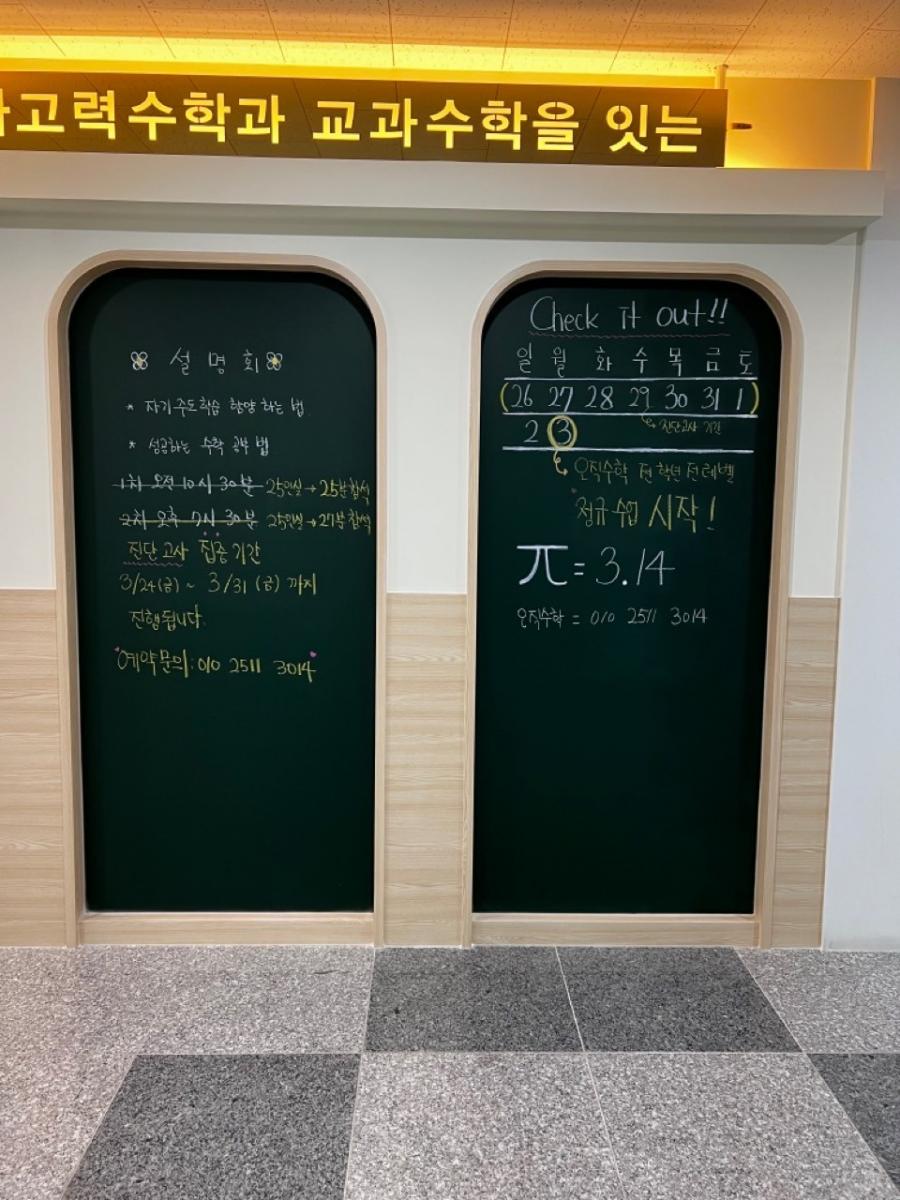 사고력수학과 교과수학을 잇는
설명회
* 자기주도학습 향양 하는 법
* 성공하는 수학 공부 법
1차 오전 10시 30분 25인실 → 25분 참석
2차 오후 7시 30분 25인실 → 27분 참석
진단고사 집중 기간
3/24(금) ~ 3/31 (금) 까지
진행됩니다.
예약문의: 010 2511 3014
Check it out!!
일 월 화 수 목 금 토
(26 27 28 29 30 31 1)
진단고사 기간
2 3
오직수학 전 학년 전 레벨
정규 수업 시작!
π = 3.14
오직수학 = 010 2511 3014